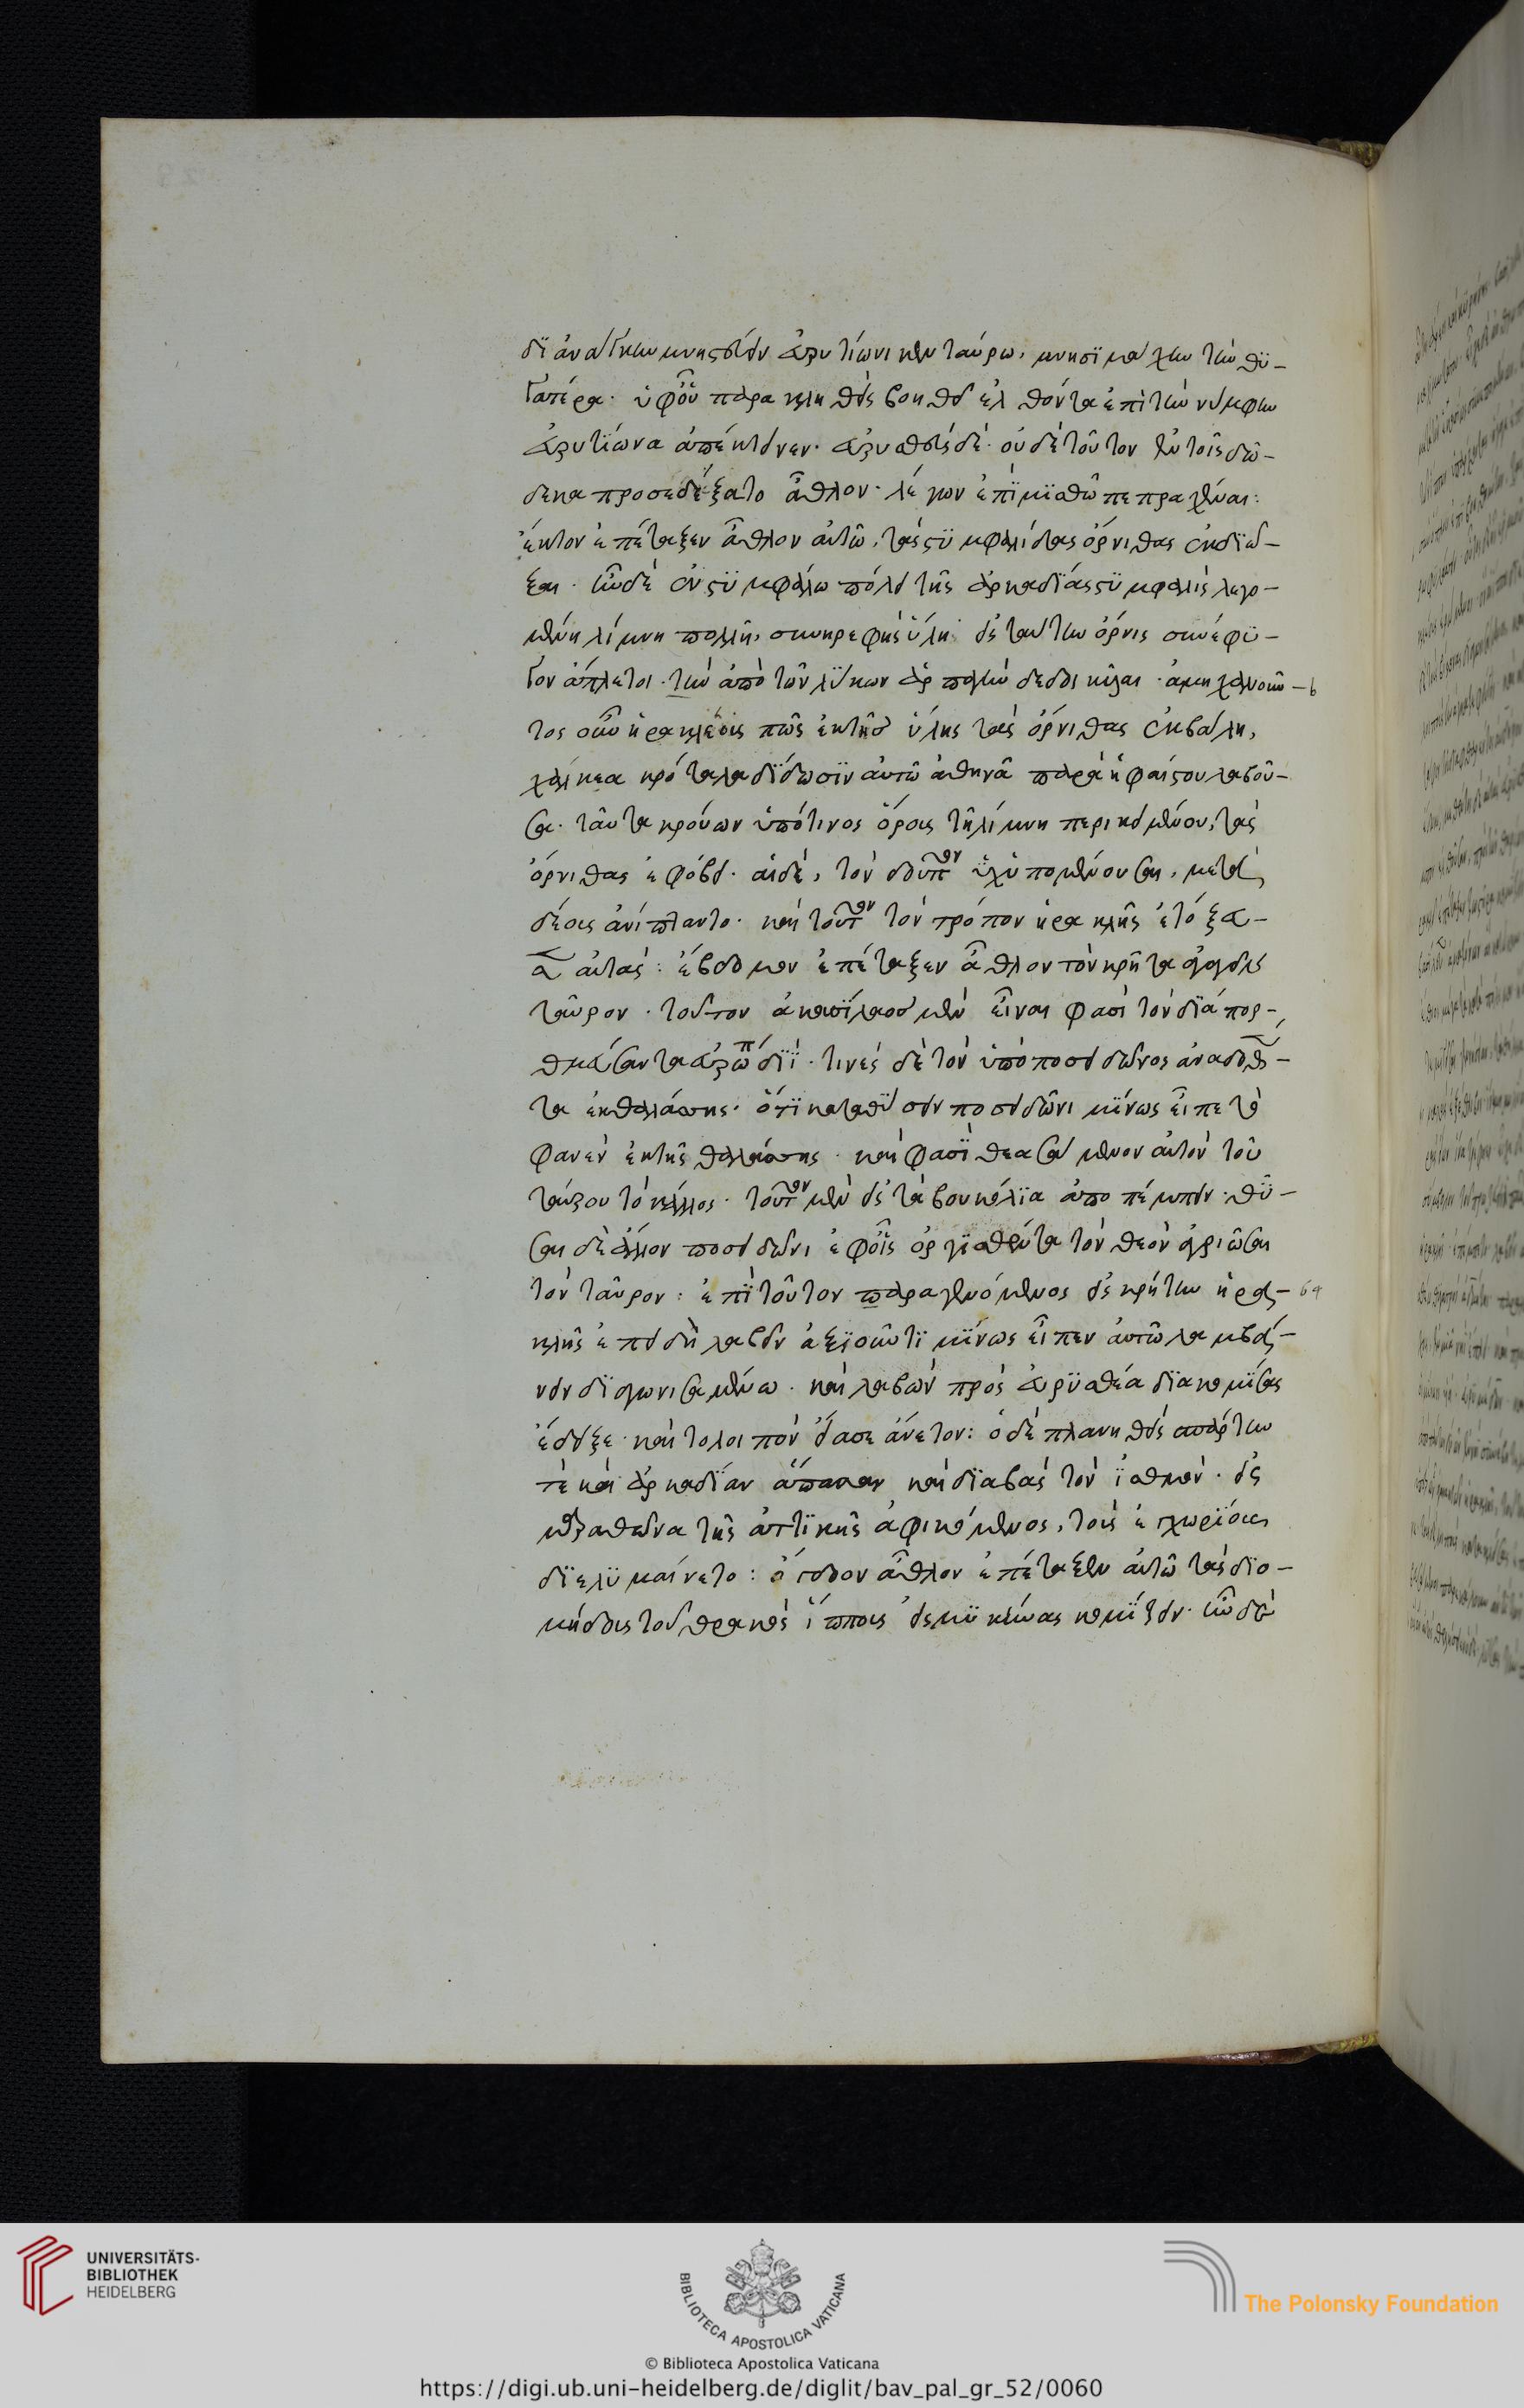 δϊ ἀνάγκην μνηστεύειν εὐρυτίωνι κενταύρω, μνησϊμάχην τὴν θϋ-
γατέρα. ὑφ' οὗ παρακληθεὶς βοηθεῖν ἐλθόντα ἐπὶ τὴν νύμφην
εὐρυτίωνα ἀπέκτεινεν. εὐρυσθεὺς δὲ οὐδὲ τοῦτον ἐν τοῖς δώ-
δεκα προσεδέξατο ἆθλον. λέγων ἐπϊ μϊσθῶ πεπραχέναι:
ἕκτον ἐπέταξεν ἆθλον αὐτῶ, τὰς στϋμφαλίδας ὄρνιθας ἐκδϊῶ-
ξαι. ἦν δὲ ἐν στϋμφάλω πόλει τῆς ἀρκαδϊας στϋμφαλὶς λεγο-
μένη λίμνη πολλῆ, συνηρεφὴς ὕλη εἰς ταύτην ὄρνις συνέφϋ-
γον ἄπλετοι. τὴν ἀπὸ τῶν λϋκων ἁρπαγὴν δεδοικυῖαι. ἀμηχανοῦν-
τος οὖν ἡρακλέους πῶς ἐκ τῆς ὕλης τὰς ὄρνιθας ἐκβάλη,
χάλκεα κρόταλα δϊδωσϊν αὐτῶ ἀθηνᾶ παρὰ ἡφαίστου λαβοῦ-
σα. ταῦτα κρούων ὑπό τινος ὄρους τῆ λίμνη περικειμένου, τὰς
ὄρνιθας ἐφόβει. αἱ δὲ, τὸν δοῦπον οὐχ ὑπομένουσαι, μετὰ
δέους ἀνίπταντο. καὶ τοῦτον τὸν τρόπον ἡρακλῆς ἐτόξευ-
σεν αὐτάς: ἕβδομον ἐπέταξεν ἆθλον τὸν κρῆτα ἀγαγεῖν
ταῦρον. τοῦτον ἀκουσϊλαος μὲν εἶναι φασὶ τὸν δϊαπορ-
θμεύσαντα εὐρώπην δϊϊ. τινὲς δὲ τὸν ὑπὸ ποσειδῶνος ἀναδοθέν-
τα ἐκ θαλάσσης. ὅτϊ καταθϋσειν ποσειδῶνι μϊνως εἶπε τὸ
φανὲν ἐκ τῆς θαλάσσης. καὶ φασϊ θεασάμενον αὐτὸν τοῦ
ταύρου τὸ κάλλος. τοῦτον μὲν εἰς τὰ βουκόλϊα ἀποπέμπειν. θῦ-
σαι δὲ ἄλλον ποσειδῶνι ἐφ' οἷς ὀργϊσθέντα τὸν θεὸν ἀγριῶσαι
τὸν ταῦρον: ἐπϊ τοῦτον παραγενόμενος εἰς κρήτην ἡρα-
κλῆς ἐπειδὴ λαβεῖν ἀξϊοῦντϊ μϊνως εἶπεν αὐτῶ λαμβά-
νειν δϊαγωνισαμένω. καὶ λαβὼν πρὸς εὐρϋσθέα δϊακομϊσας
ἔδειξε. καὶ τολοιπὸν εἴασε ἄνετον: ὁ δὲ πλανηθεὶς σπάρτην
τὲ καὶ ἀρκαδϊαν ἅπασαν καὶ δϊαβὰς τὸν ϊσθμὸν. εἰς
μαραθῶνα τῆς ἀττϊκῆς ἀφικόμενος, τοὺς ἐγχωρϊους
δϊελϋμαίνετο: ὄγδοον ἆθλον ἐπέταξεν αὐτῶ τὰς δϊο-
μήδους τοῦ θρακὸς ἵππους εἰς μϋκήνας κομϊζειν. ἦν δὲ
UNIVERSITÄTS-
BIBLIOTHEK
HEIDELBERG
BIBLIOTECA APOSTOLICA VATICANA
The Polonsky Foundation
© Biblioteca Apostolica Vaticana
https://digi.ub.uni-heidelberg.de/diglit/bav_pal_gr_52/0060